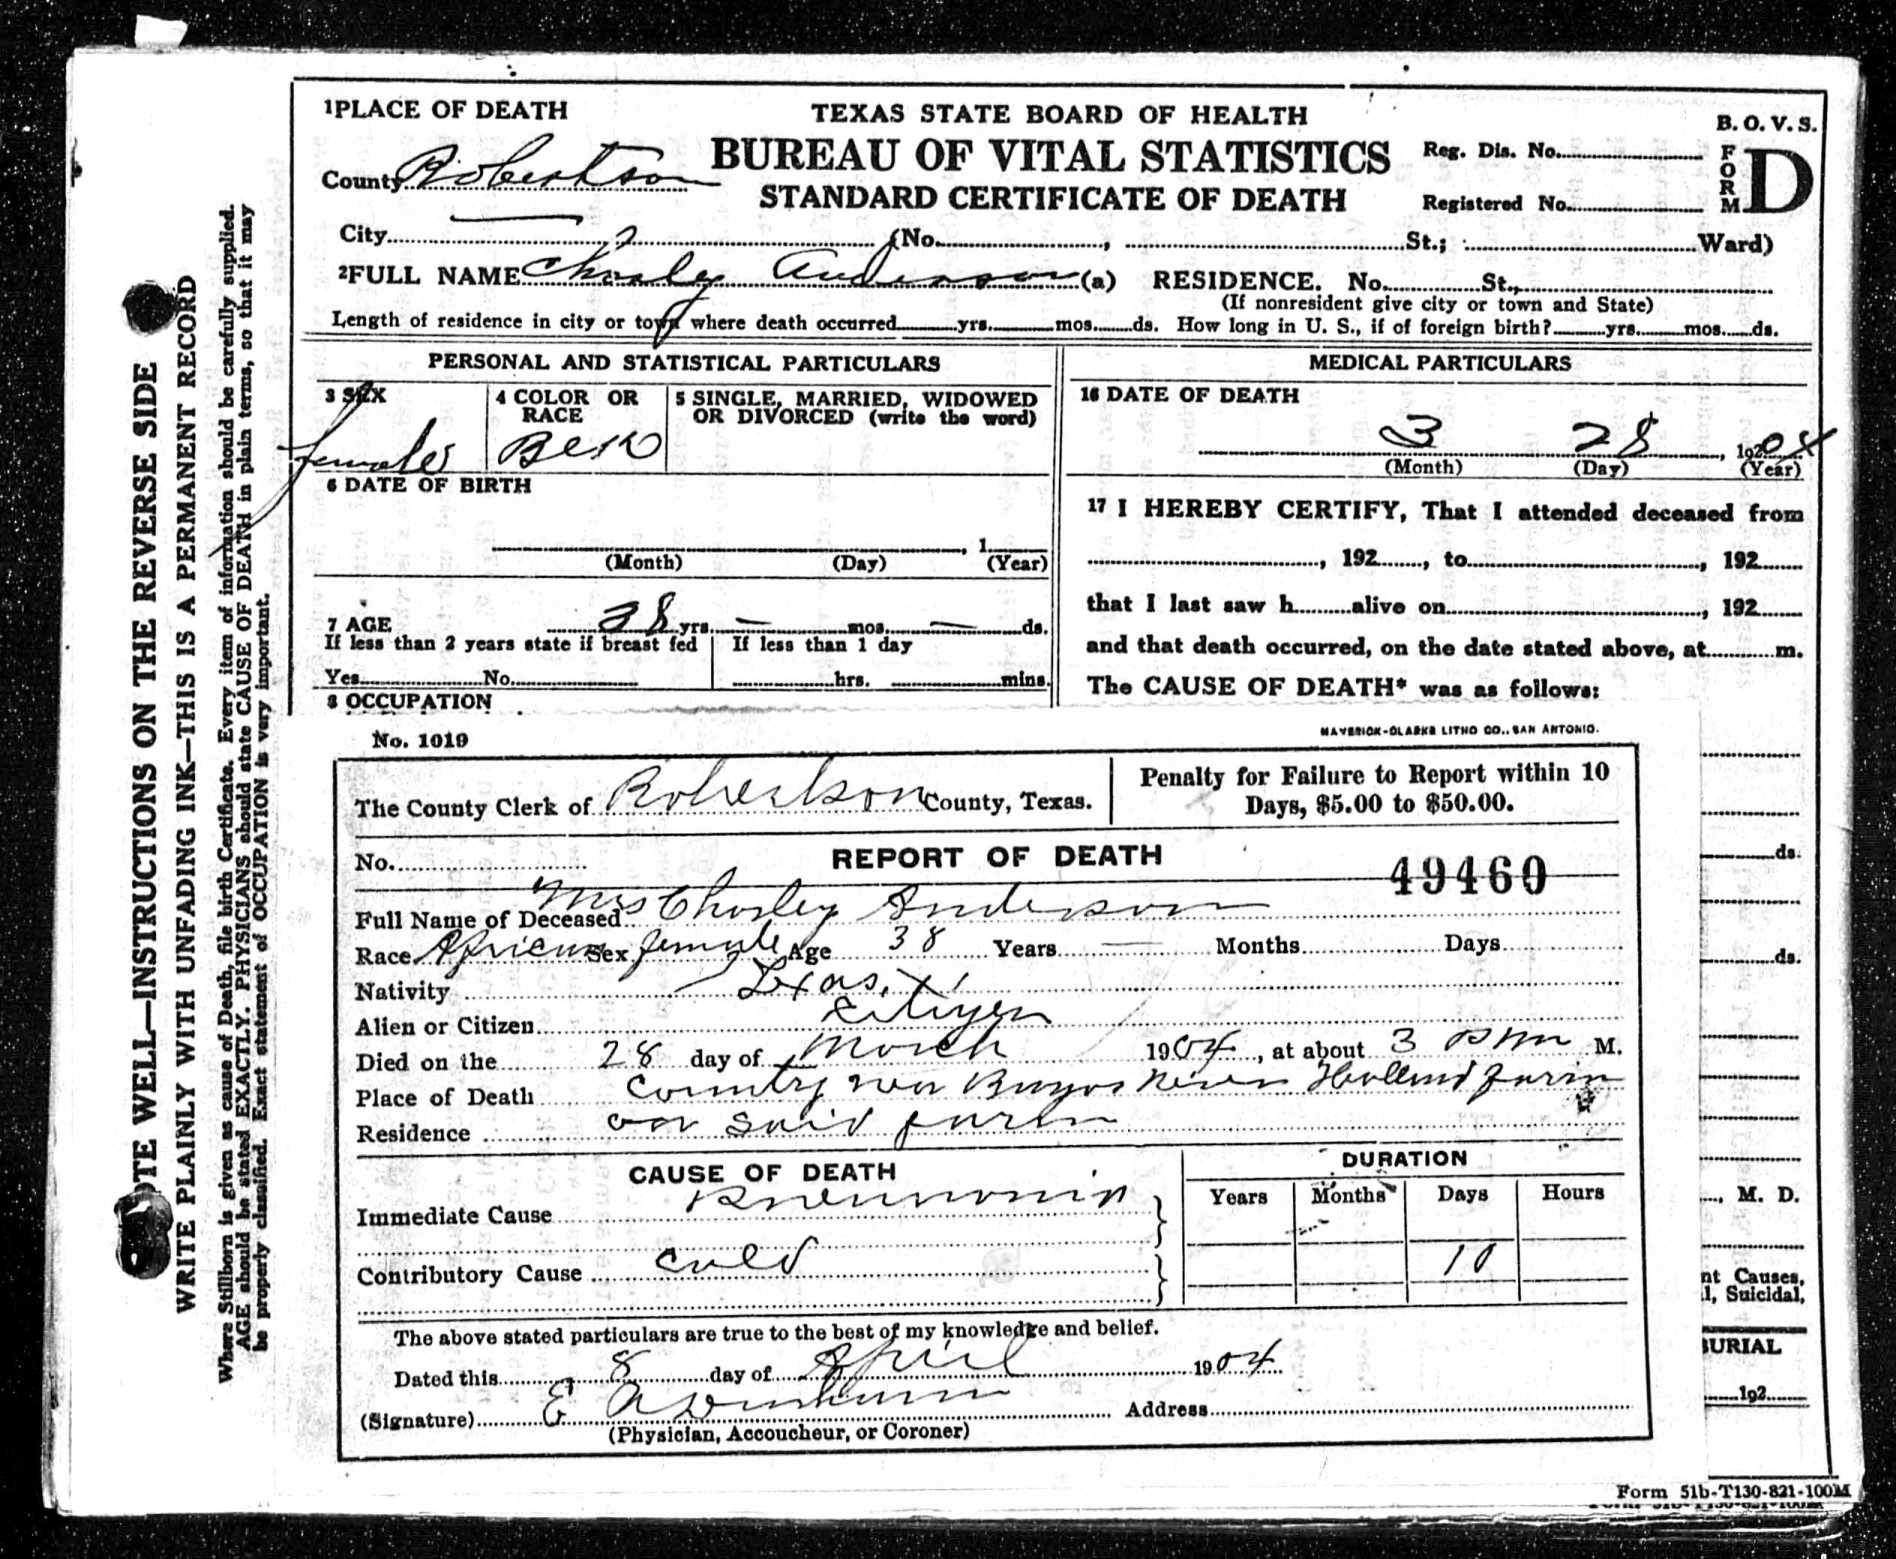 1 PLACE OF DEATH
TEXAS STATE BOARD OF HEALTH
B. O. V. S.
BUREAU OF VITAL STATISTICS
Reg. Dis. No.
FORM D
County Robertson
STANDARD CERTIFICATE OF DEATH
Registered No.
City (No. , St.; Ward)
2 FULL NAME Chorley Anderson (a) RESIDENCE. No. St.,
(If nonresident give city or town and State)
Length of residence in city or town where death occurred yrs. mos. ds. How long in U. S., if of foreign birth? yrs. mos. ds.
PERSONAL AND STATISTICAL PARTICULARS
3 SEX
female
4 COLOR OR RACE
Blk
5 SINGLE, MARRIED, WIDOWED
OR DIVORCED (write the word)
6 DATE OF BIRTH
, 1
(Month) (Day) (Year)
7 AGE 38 yrs. — mos. — ds.
If less than 2 years state if breast fed
Yes No
If less than 1 day
hrs. mins.
8 OCCUPATION
MEDICAL PARTICULARS
16 DATE OF DEATH
3 28, 19204
(Month) (Day) (Year)
17 I HEREBY CERTIFY, That I attended deceased from
, 192 , to , 192
that I last saw h alive on , 192
and that death occurred, on the date stated above, at m.
The CAUSE OF DEATH* was as follows:
No. 1019
MAVERICK-CLARKE LITHO CO., SAN ANTONIO.
The County Clerk of Robertson County, Texas.
Penalty for Failure to Report within 10
Days, $5.00 to $50.00.
No. REPORT OF DEATH 49460
Full Name of Deceased Mrs Chorley Anderson
Race African Sex female Age 38 Years — Months Days
Nativity Texas.
Alien or Citizen citizen
Died on the 28 day of March 1904, at about 3 P M.
Place of Death Country near Brazos River Holland farm
Residence on said farm
CAUSE OF DEATH
DURATION
Years Months Days Hours
Immediate Cause Pneumonia
Contributory Cause cold 10
The above stated particulars are true to the best of my knowledge and belief.
Dated this 8 day of April 1904
(Signature) E Address
(Physician, Accoucheur, or Coroner)
ds.
ds.
, M. D.
nt Causes,
l, Suicidal,
BURIAL
192
Form 51b-T130-821-100M
OTE WELL—INSTRUCTIONS ON THE REVERSE SIDE
WRITE PLAINLY WITH UNFADING INK—THIS IS A PERMANENT RECORD
Where Stillborn is given as cause of Death, file birth Certificate. Every item of information should be carefully supplied.
AGE should be stated EXACTLY. PHYSICIANS should state CAUSE OF DEATH in plain terms, so that it may
be properly classified. Exact statement of OCCUPATION is very important.